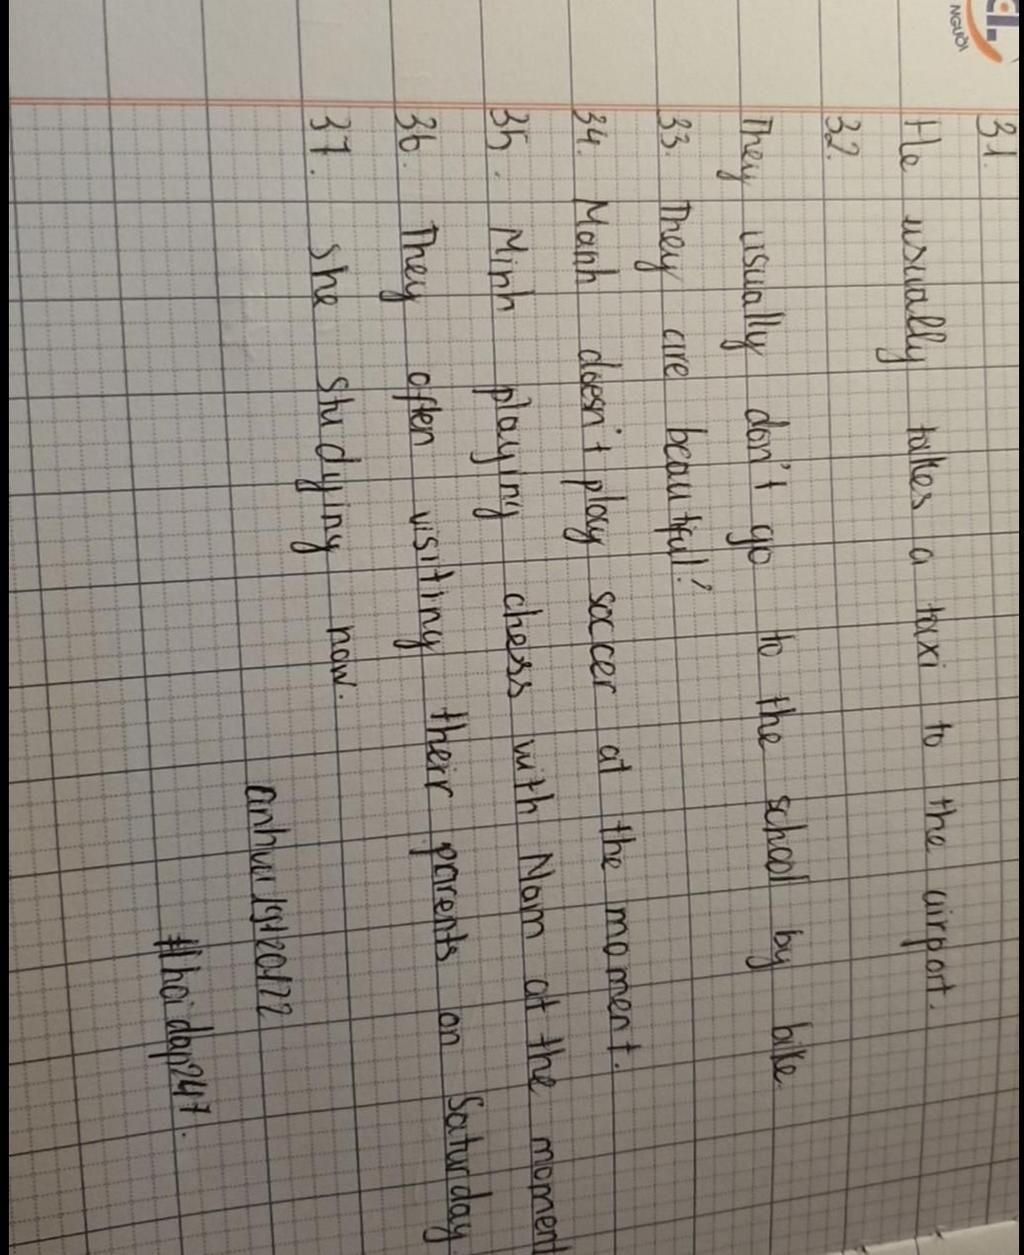 NGƯỜI
31.
He usually takes a taxi to the airport.
32.
They usually don't go to the school by bike
33. They are beautiful!
34. Manh doesn't play soccer at the moment.
35. Minh playing chess with Nam at the moment
36. They often visiting their parents on Saturday.
37. she studying now.
#hoidap247.